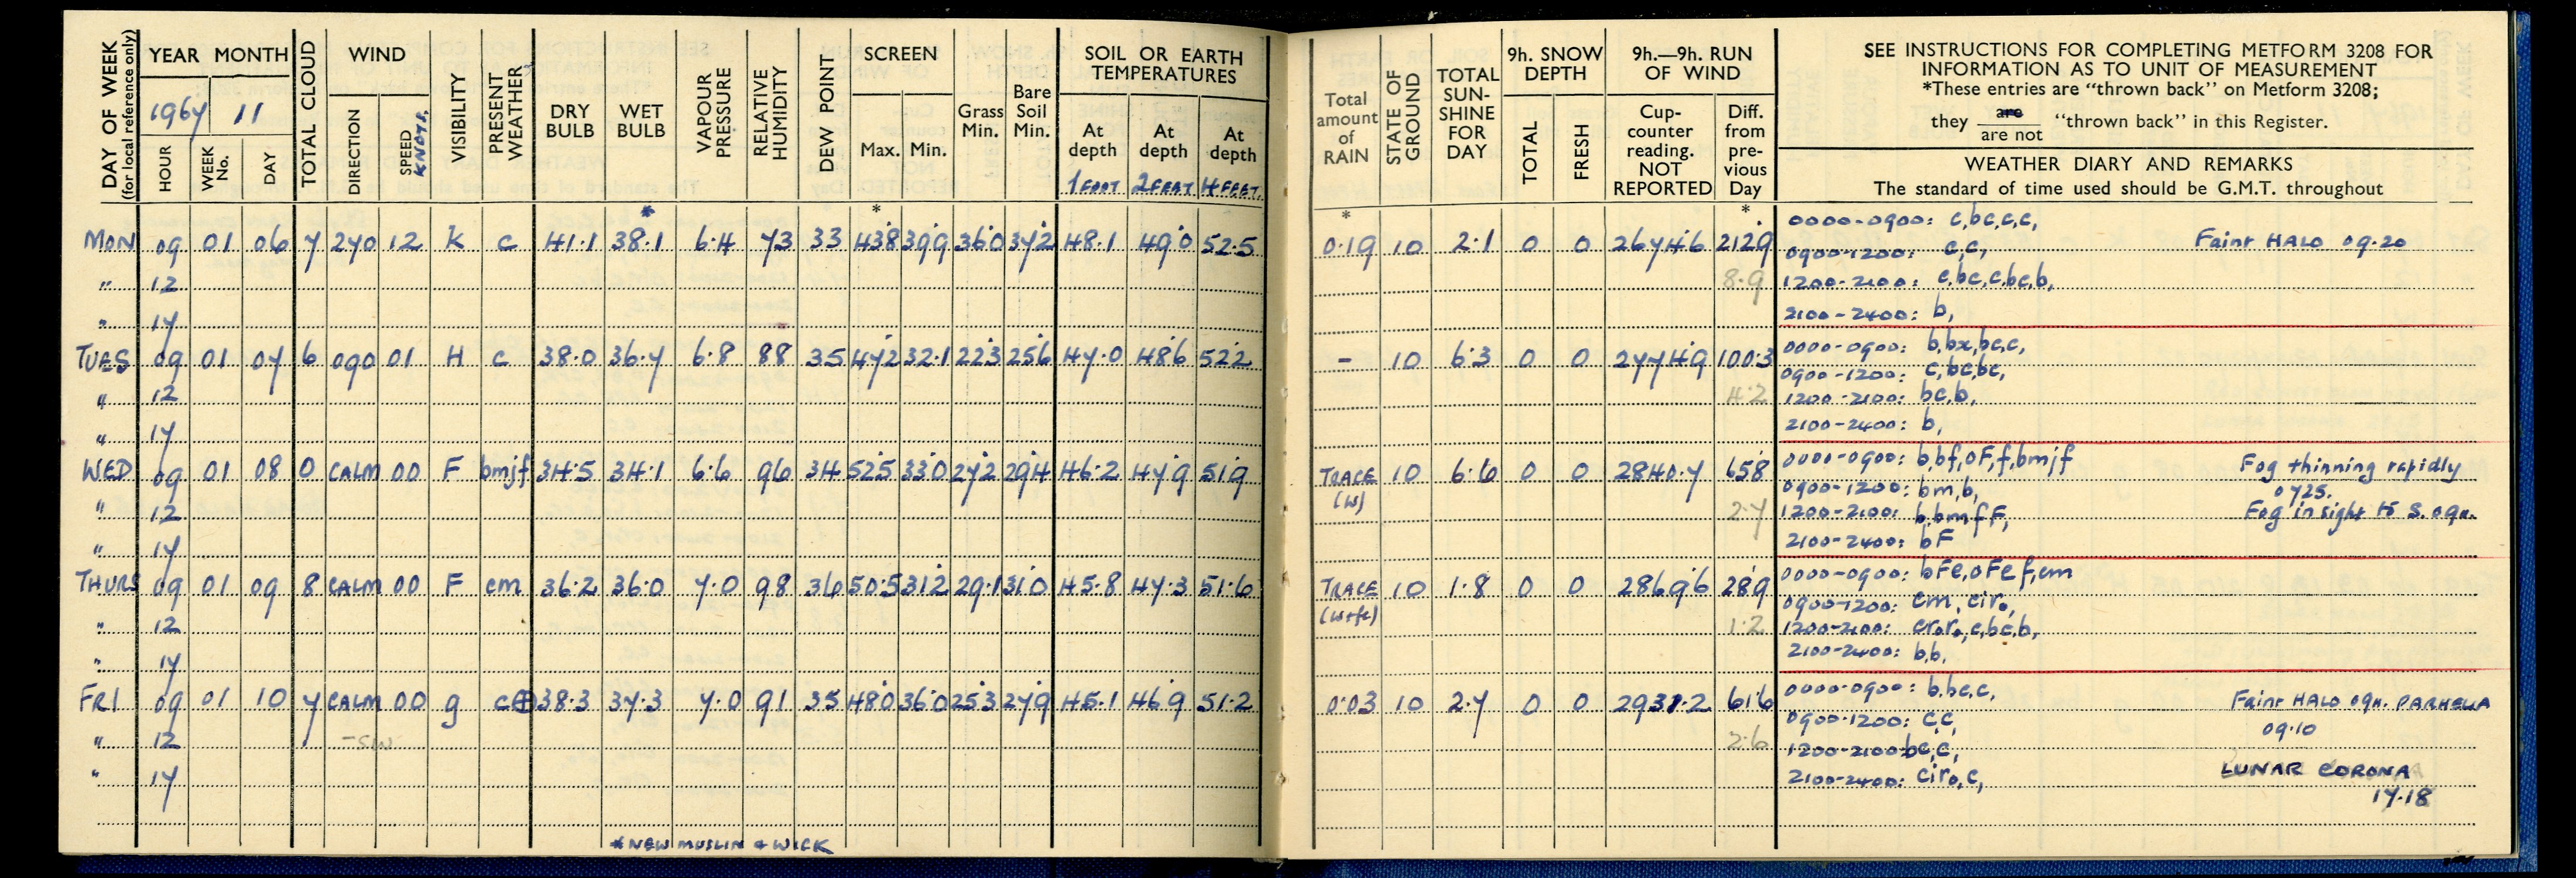 DAY OF WEEK (for local reference only)
YEAR MONTH
1967 11
HOUR WEEK No. DAY
TOTAL CLOUD
WIND
DIRECTION SPEED KNOTS.
VISIBILITY
PRESENT WEATHER
DRY BULB WET BULB
VAPOUR PRESSURE
RELATIVE HUMIDITY
DEW POINT
SCREEN
Max. Min.
Grass Min.
Bare Soil Min.
SOIL OR EARTH TEMPERATURES
At depth At depth At depth
1 FOOT 2 FEET 4 FEET
Total amount of RAIN
STATE OF GROUND
TOTAL SUN-SHINE FOR DAY
9h. SNOW DEPTH
TOTAL FRESH
9h.—9h. RUN OF WIND
Cup-counter reading. NOT REPORTED
Diff. from pre-vious Day
SEE INSTRUCTIONS FOR COMPLETING METFORM 3208 FOR
INFORMATION AS TO UNIT OF MEASUREMENT
*These entries are "thrown back" on Metform 3208;
they are / are not "thrown back" in this Register.
WEATHER DIARY AND REMARKS
The standard of time used should be G.M.T. throughout
* * * *
MON 09 01 06 7 270 12 K c 41.1 38.1 6.4 73 33 43.8 39.9 36.0 37.2 48.1 49.0 52.5 0.19 10 2.1 0 0 2674.6 212.9 0000-0900: c,bc,c,c,
0900-1200: c,c, Faint HALO 09.20
" 12 8.9 1200-2100: c,bc,c,bc,b,
" 17 2100-2400: b,
TUES 09 01 07 6 090 01 H c 38.0 36.7 6.8 88 35 47.2 32.1 22.3 25.6 47.0 48.6 52.2 - 10 6.3 0 0 2774.9 100.3 0000-0900: b,bx,bc,c,
0900-1200: c,bc,bc,
" 12 4.2 1200-2100: bc,b,
" 17 2100-2400: b,
WED 09 01 08 0 CALM 00 F bmjf 34.5 34.1 6.6 96 34 52.5 33.0 27.2 29.4 46.2 47.9 51.9 TRACE (W) 10 6.6 0 0 2840.7 65.8 0000-0900: b,bf,oF,f,bmjf Fog thinning rapidly
0900-1200: bm,b, 0725.
" 12 2.7 1200-2100: b,bmfF, Fog in sight to S. 09h.
" 17 2100-2400: bF
THURS 09 01 09 8 CALM 00 F cm 36.2 36.0 7.0 98 36 50.5 31.2 29.1 31.0 45.8 47.3 51.6 TRACE (W+fe) 10 1.8 0 0 2869.6 28.9 0000-0900: bFe,oFef,cm
0900-1200: cm, ciro,
" 12 1.2 1200-2100: croro,c,bc,b,
" 17 2100-2400: b,b,
FRI 09 01 10 7 CALM 00 g c⊕ 38.3 37.3 7.0 91 35 48.0 36.0 25.3 27.9 45.1 46.9 51.2 0.03 10 2.7 0 0 2931.2 61.6 0000-0900: b,bc,c, Faint HALO 09h. PARHELIA
0900-1200: c,c, 09.10
" 12 -SW 2.6 1200-2100 bc,c,
" 17 2100-2400: ciro,c, LUNAR CORONA
17.18
* NEW MUSLIN & WICK